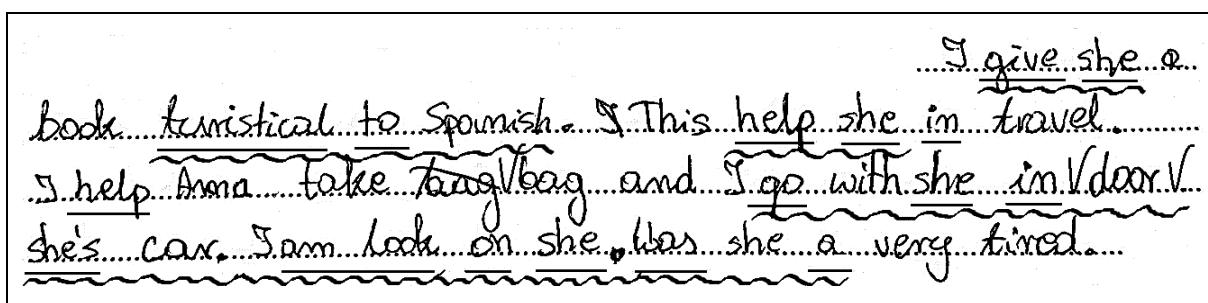 I give she a
book turistical to Spanish. I This help she in travel.
I help Anna take baag V bag and I go with she in V door V
she's car. I am look on she. Was she a very tired.